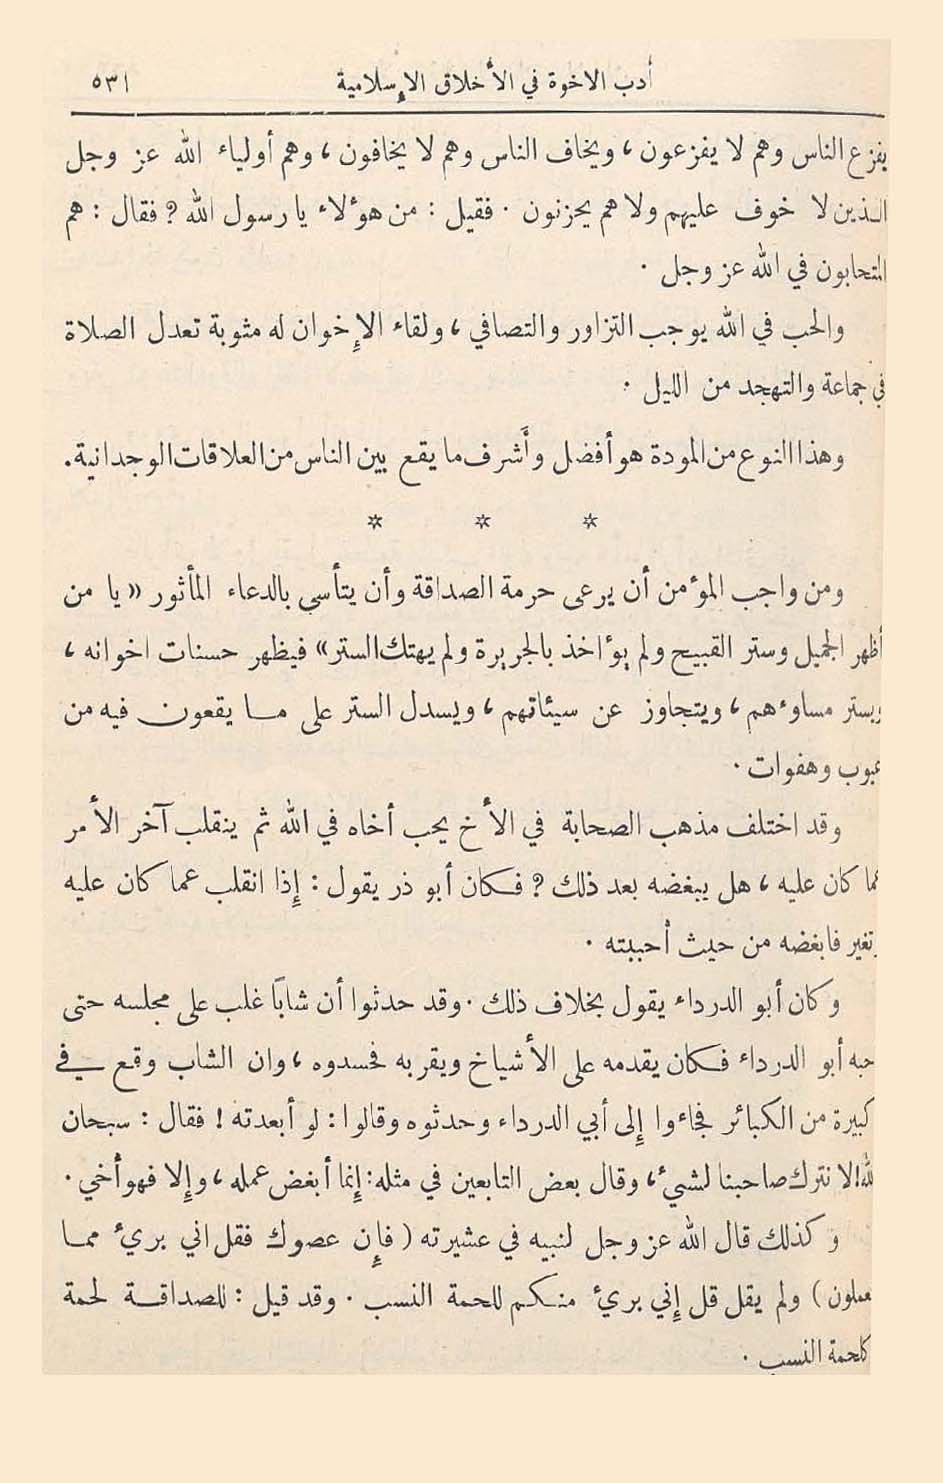 أدب الاخوة في الأخلاق الإسلامية ٥٣١
يفزع الناس وهم لا يفزعون، ويخاف الناس وهم لا يخافون، وهم أولياء الله عز وجل
الذين لا خوف عليهم ولا هم يحزنون. فقيل: من هؤلاء يا رسول الله؟ فقال: هم
المتحابون في الله عز وجل.
والحب في الله يوجب التزاور والتصافي، ولقاء الإخوان له مثوبة تعدل الصلاة
في جماعة والتهجد من الليل.
وهذا النوع من المودة هو أفضل وأشرف ما يقع بين الناس من العلاقات الوجدانية.
* * *
ومن واجب المؤمن أن يرعى حرمة الصداقة وأن يتأسى بالدعاء المأثور «يا من
أظهر الجميل وستر القبيح ولم يؤاخذ بالجريرة ولم يهتك الستر» فيظهر حسنات اخوانه،
ويستر مساوءهم، ويتجاوز عن سيئاتهم، ويسدل الستر على ما يقعون فيه من
عيوب وهفوات.
وقد اختلف مذهب الصحابة في الأخ يحب أخاه في الله ثم ينقلب آخر الأمر
عما كان عليه، هل يبغضه بعد ذلك؟ فكان أبو ذر يقول: إذا انقلب عما كان عليه
وتغير فابغضه من حيث أحببته.
وكان أبو الدرداء يقول بخلاف ذلك. وقد حدثوا أن شاباً غلب على مجلسه حتى
أحبه أبو الدرداء فكان يقدمه على الأشياخ ويقربه فحسدوه، وان الشاب وقع في
كبيرة من الكبائر فجاءوا إلى أبي الدرداء وحدثوه وقالوا: لو أبعدته! فقال: سبحان
الله! لا نترك صاحبنا لشيء، وقال بعض التابعين في مثله: إنما أبغض عمله، وإلا فهو أخي.
وكذلك قال الله عز وجل لنبيه في عشيرته (فإن عصوك فقل اني بريء مما
تعملون) ولم يقل قل إني بريء منكم للحمة النسب. وقد قيل: للصداقة لحمة
كلحمة النسب.